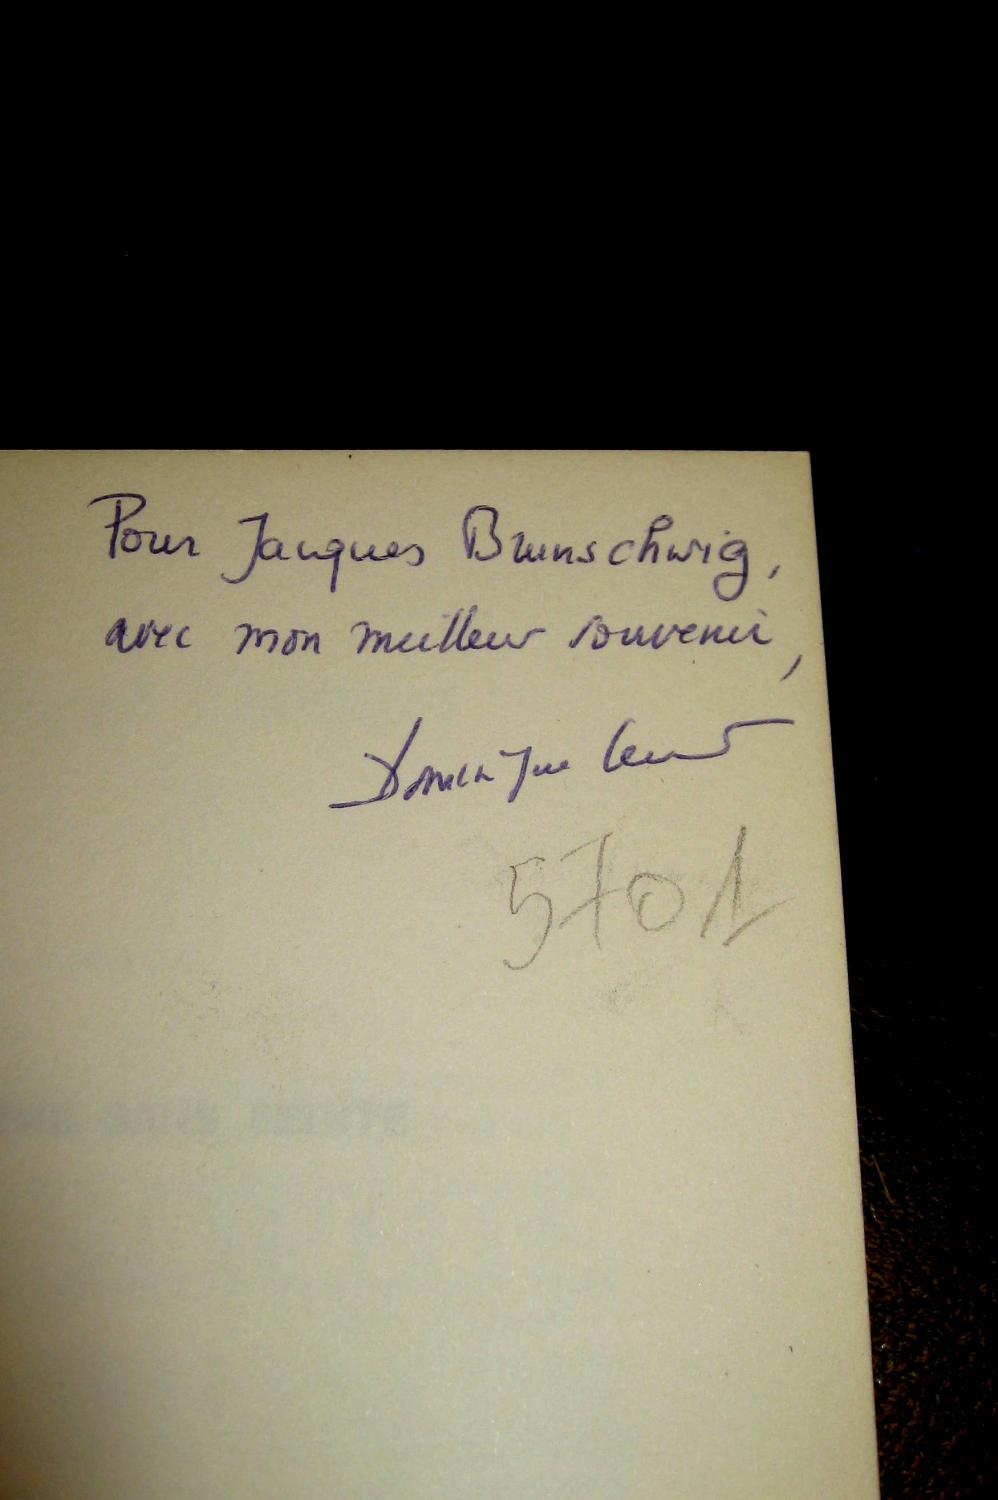 Pour Jacques Brunschwig,
avec mon meilleur souvenir,
Dominique
5701